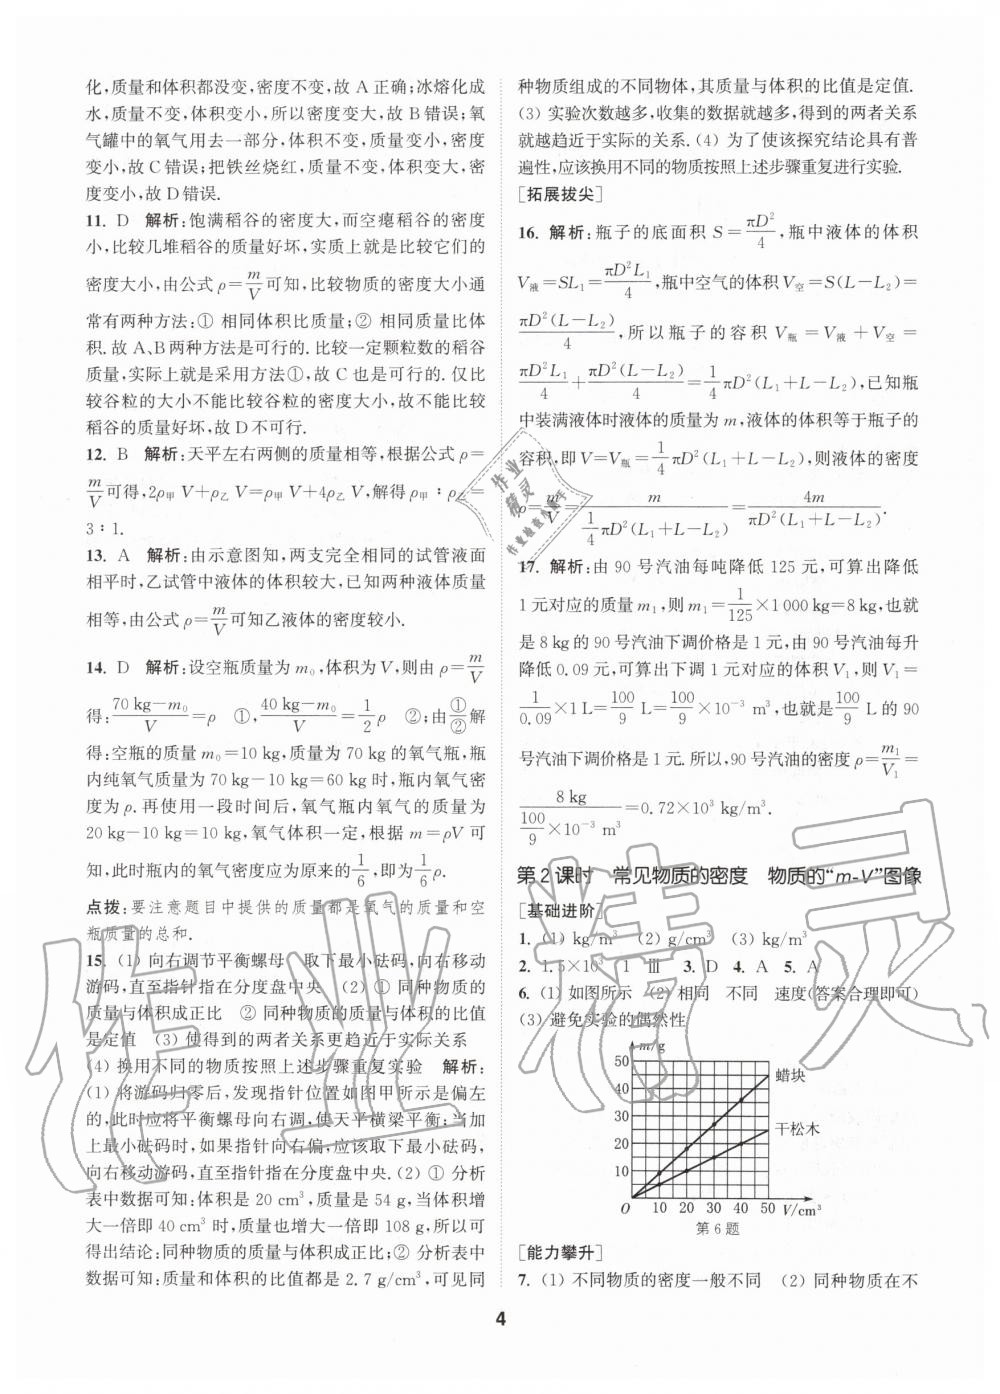 化,质量和体积都没变,密度不变,故 A 正确;冰熔化成
水,质量不变,体积变小,所以密度变大,故 B 错误;氧
气罐中的氧气用去一部分,体积不变,质量变小,密度
变小,故 C 错误;把铁丝烧红,质量不变,体积变大,密
度变小,故 D 错误.
11. D 解析:饱满稻谷的密度大,而空瘪稻谷的密度
小,比较几堆稻谷的质量好坏,实质上就是比较它们的
密度大小,由公式 ρ=m/V 可知,比较物质的密度大小通
常有两种方法:① 相同体积比质量;② 相同质量比体
积.故 A、B 两种方法是可行的.比较一定颗粒数的稻谷
质量,实际上就是采用方法①,故 C 也是可行的.仅比
较谷粒的大小不能比较谷粒的密度大小,故不能比较
稻谷的质量好坏,故 D 不可行.
12. B 解析:天平左右两侧的质量相等,根据公式 ρ=
m/V 可得,2ρ甲V+ρ乙V=ρ甲V+4ρ乙V,解得 ρ甲∶ρ乙=
3∶1.
13. A 解析:由示意图知,两支完全相同的试管液面
相平时,乙试管中液体的体积较大,已知两种液体质量
相等,由公式 ρ=m/V 可知乙液体的密度较小.
14. D 解析:设空瓶质量为 m₀,体积为 V,则由 ρ=m/V
得:(70 kg−m₀)/V=ρ ①,(40 kg−m₀)/V=1/2ρ ②;由①/②解
得:空瓶的质量 m₀=10 kg,质量为 70 kg 的氧气瓶,瓶
内纯氧气质量为 70 kg−10 kg=60 kg 时,瓶内氧气密
度为 ρ.再使用一段时间后,氧气瓶内氧气的质量为
20 kg−10 kg=10 kg,氧气体积一定,根据 m=ρV 可
知,此时瓶内的氧气密度应为原来的1/6,即为1/6ρ.
点拨:要注意题目中提供的质量都是氧气的质量和空
瓶质量的总和.
15. (1) 向右调节平衡螺母 取下最小砝码,向右移动
游码,直至指针指在分度盘中央 (2) ① 同种物质的
质量与体积成正比 ② 同种物质的质量与体积的比值
是定值 (3) 使得到的两者关系更趋近于实际关系
(4) 换用不同的物质按照上述步骤重复实验 解析:
(1) 将游码归零后,发现指针位置如图甲所示是偏左
的,此时应将平衡螺母向右调,使天平横梁平衡;当加
上最小砝码时,如果指针向右偏,应该取下最小砝码,
向右移动游码,直至指针指在分度盘中央.(2) ① 分析
表中数据可知:体积是 20 cm³,质量是 54 g,当体积增
大一倍即 40 cm³ 时,质量也增大一倍即 108 g,所以可
得出结论:同种物质的质量与体积成正比;② 分析表中
数据可知:质量和体积的比值都是 2.7 g/cm³,可见同
种物质组成的不同物体,其质量与体积的比值是定值.
(3) 实验次数越多,收集的数据就越多,得到的两者关系
就越趋近于实际的关系.(4) 为了使该探究结论具有普
遍性,应该换用不同的物质按照上述步骤重复进行实验.
[拓展拔尖]
16. 解析:瓶子的底面积 S=πD²/4,瓶中液体的体积
V液=SL₁=πD²L₁/4,瓶中空气的体积 V空=S(L−L₂)=
πD²(L−L₂)/4,所以瓶子的容积 V瓶=V液+V空=
πD²L₁/4+πD²(L−L₂)/4=1/4πD²(L₁+L−L₂),已知瓶
中装满液体时液体的质量为 m,液体的体积等于瓶子的
容积,即 V=V瓶=1/4πD²(L₁+L−L₂),则液体的密度
ρ=m/V=m/(1/4πD²(L₁+L−L₂))=4m/(πD²(L₁+L−L₂)).
17. 解析:由 90 号汽油每吨降低 125 元,可算出降低
1 元对应的质量 m₁,则 m₁=1/125×1 000 kg=8 kg,也就
是 8 kg 的 90 号汽油下调价格是 1 元,由 90 号汽油每升
降低 0.09 元,可算出下调 1 元对应的体积 V₁,则 V₁=
1/0.09×1 L=100/9 L=100/9×10⁻³ m³,也就是100/9 L 的 90
号汽油下调价格是 1 元.所以,90 号汽油的密度 ρ=m₁/V₁=
8 kg/(100/9×10⁻³ m³)=0.72×10³ kg/m³.
第 2 课时 常见物质的密度 物质的“m-V”图像
[基础进阶]
1. (1) kg/m³ (2) g/cm³ (3) kg/m³
2. 1.5×10³ 1 Ⅲ 3. D 4. A 5. A
6. (1) 如图所示 (2) 相同 不同 速度(答案合理即可)
(3) 避免实验的偶然性
m/g
50
40
30
20
10
O 10 20 30 40 50 V/cm³
蜡块
干松木
第 6 题
[能力攀升]
7. (1) 不同物质的密度一般不同 (2) 同种物质在不
4
作业精灵
作业精灵
作业检查小助手